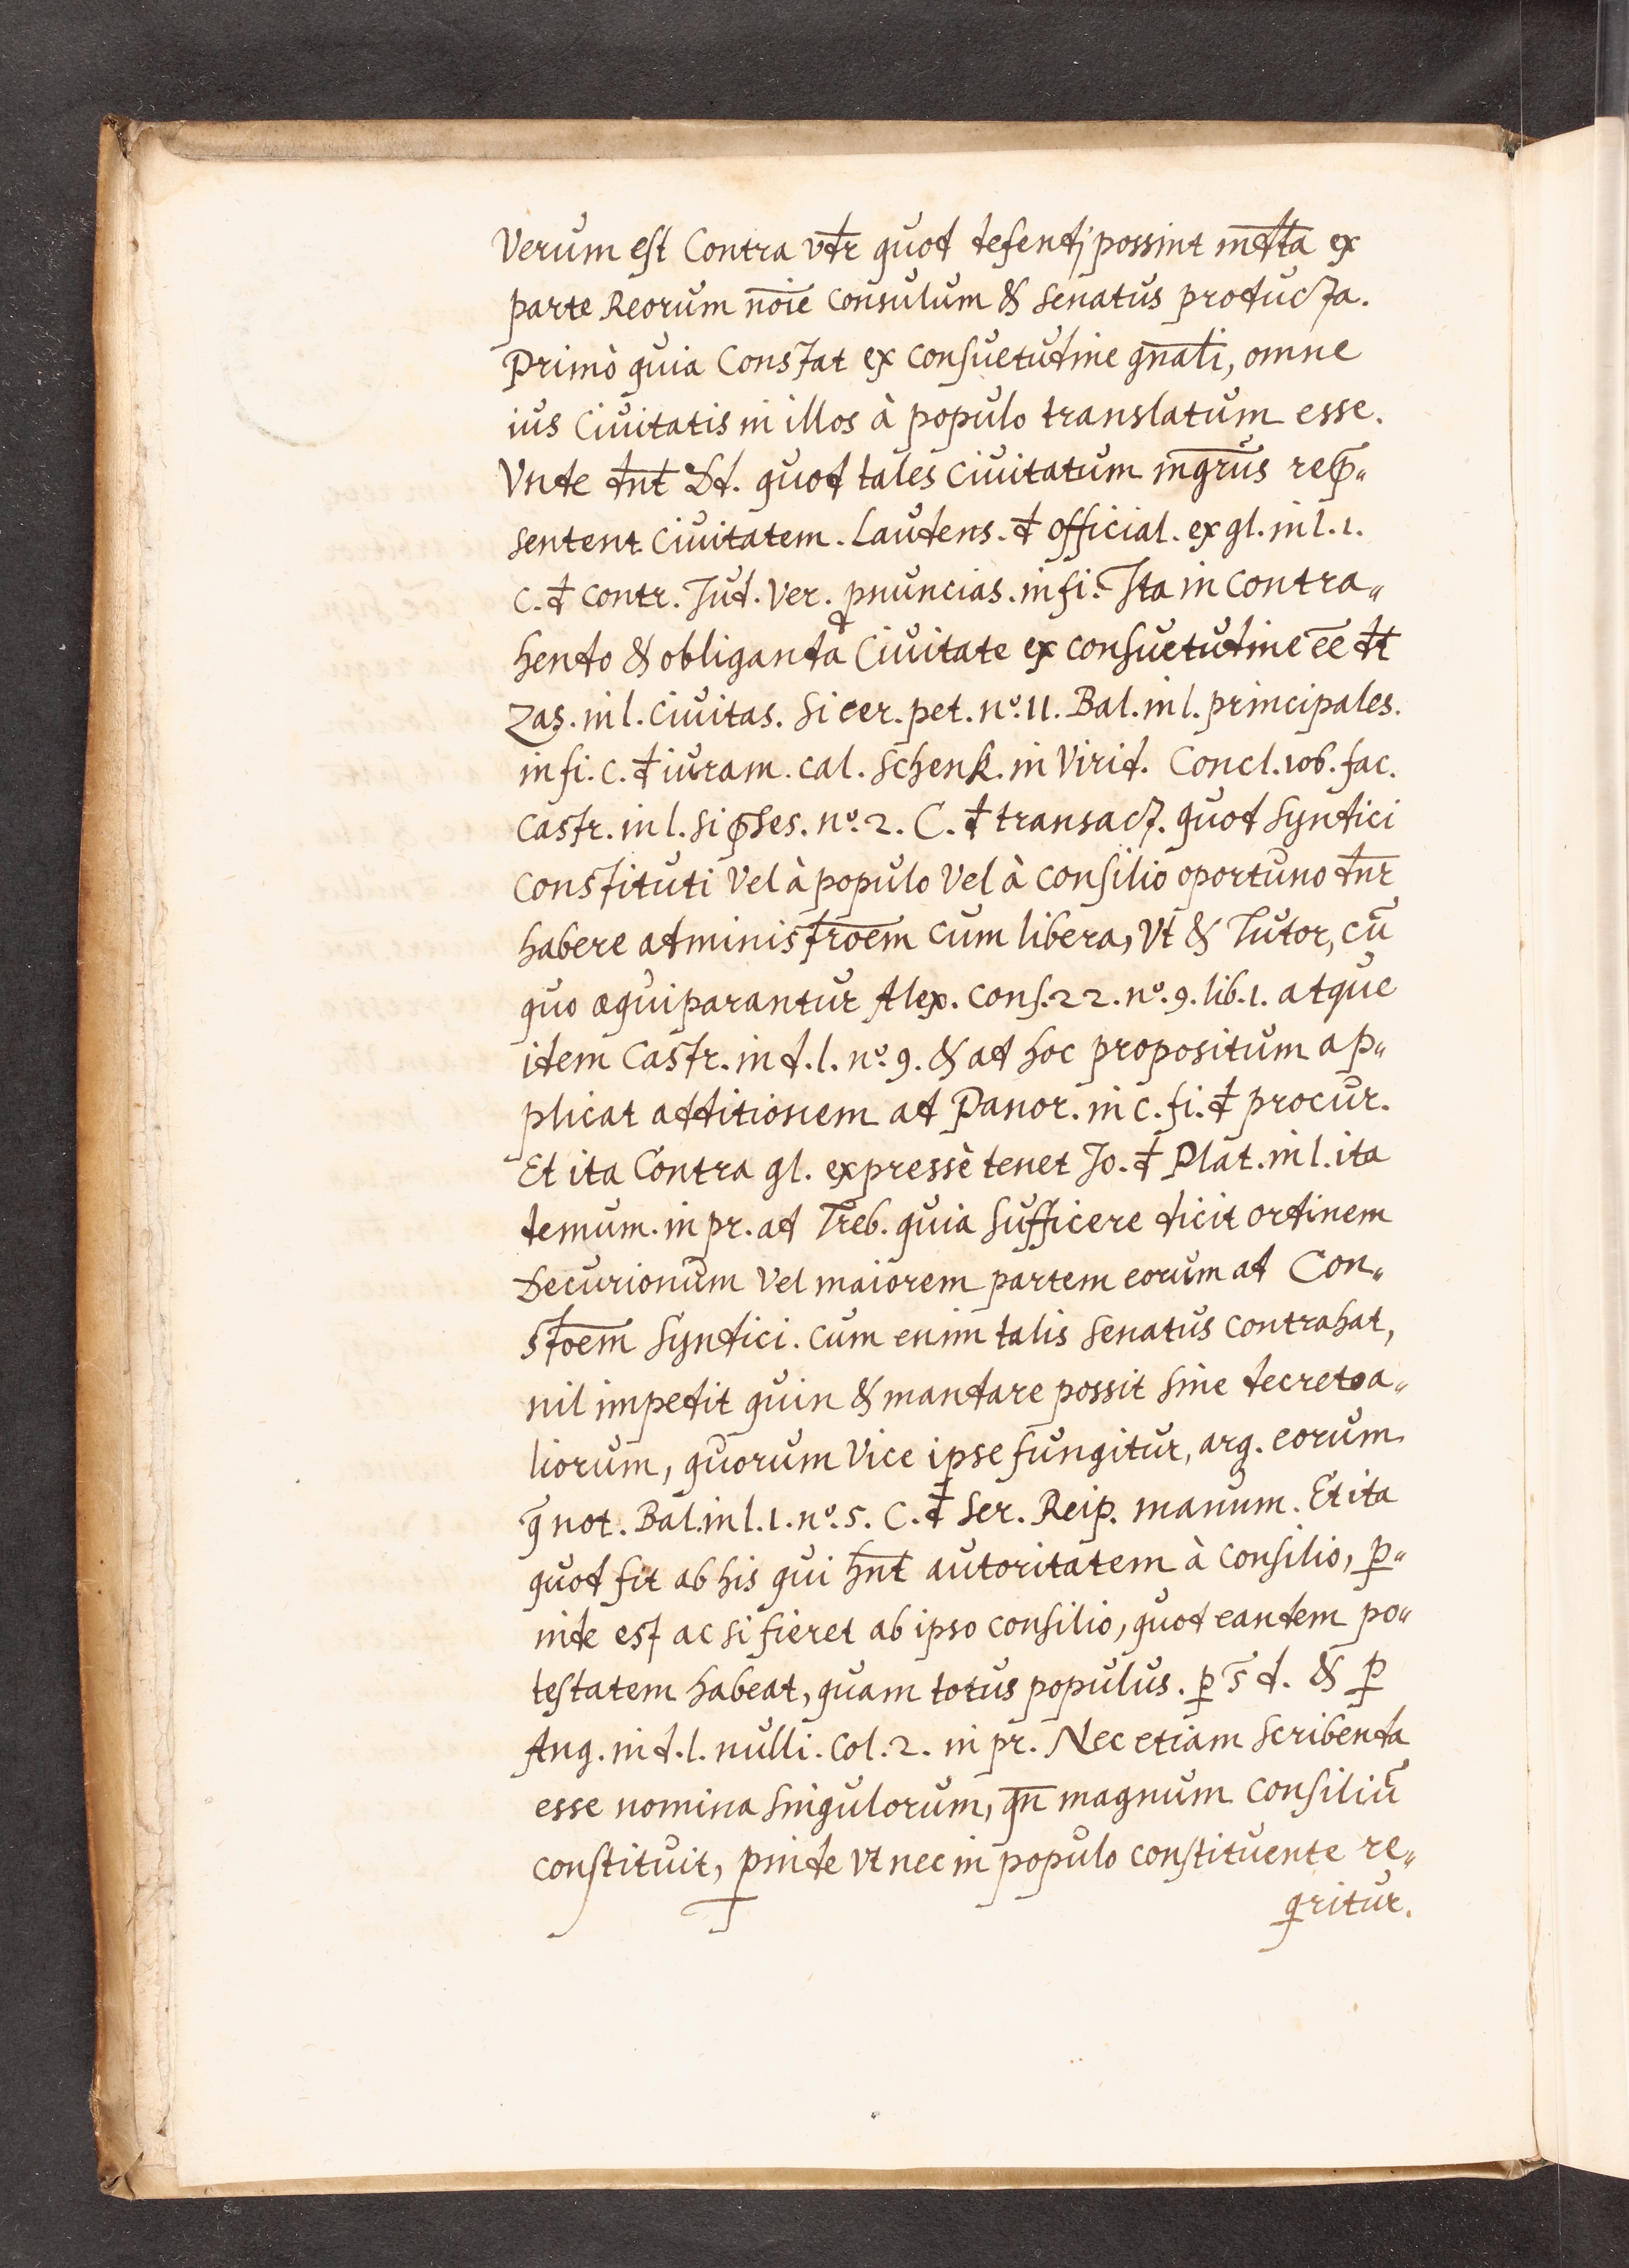 Verum est Contra vdr quod defendj possint mdta ex
parte Reorum noie consulum & senatus producta.
Primò quia Constat ex consuetudine gnali, omne
ius Ciuitatis in illos à populo translatum esse.
Vnde dnt Dd. quod tales Ciuitatum mgrus rep„
sentent Ciuitatem. Laudens. đ official. ex gl. in l. 1.
C. đ contr. Jud. Ver. pnuncias. in fi. Ita in contra„
hendo & obliganda Ciuitate ex consuetudine ee dt
Zas. in l. Ciuitas. si cer. pet. nº. 11. Bal. in l. principales.
in fi. C. đ iuram. cal. Schenk. in Virid. Concl. 106. fac.
Castr. in l. si pses. nº. 2. C. đ transact. quod Syndici
constituti Vel à populo Vel à consilio oportuno dnr
habere administroem cum libera, Vt & Tutor, cū
quo æquiparantur Alex. cons. 22. nº. 9. lib. 1. atque
idem Castr. in d. l. nº. 9. & ad hoc propositum ap„
plicat additionem ad Panor. in c. fi. đ procur.
Et ita Contra gl. expressè tenet Jo. đ Plat. in l. ita
demum. in pr. ad Treb. quia sufficere dicit ordinem
Decurionum Vel maiorem partem eorum ad Con„
stoem Syndici. Cum enim talis Senatus contrahat,
nil impedit quin & mandare possit sine decreto a„
liorum, quorum Vice ipse fungitur, arg. eorum
q̄ not. Bal. in l. 1. nº. 5. C. đ Ser. Reip. manum. Et ita
quod fit ab his qui hnt autoritatem à consilio, p„
inde est ac si fieret ab ipso consilio, quod eandem po„
testatem habeat, quam totus populus. p s̄ d. & p
Ang. in d. l. nulli. Col. 2. in pr. Nec etiam scribenda
esse nomina singulorum, qn magnum Consiliū
constituit, pinde vt nec in populo constituente re„
qritur.